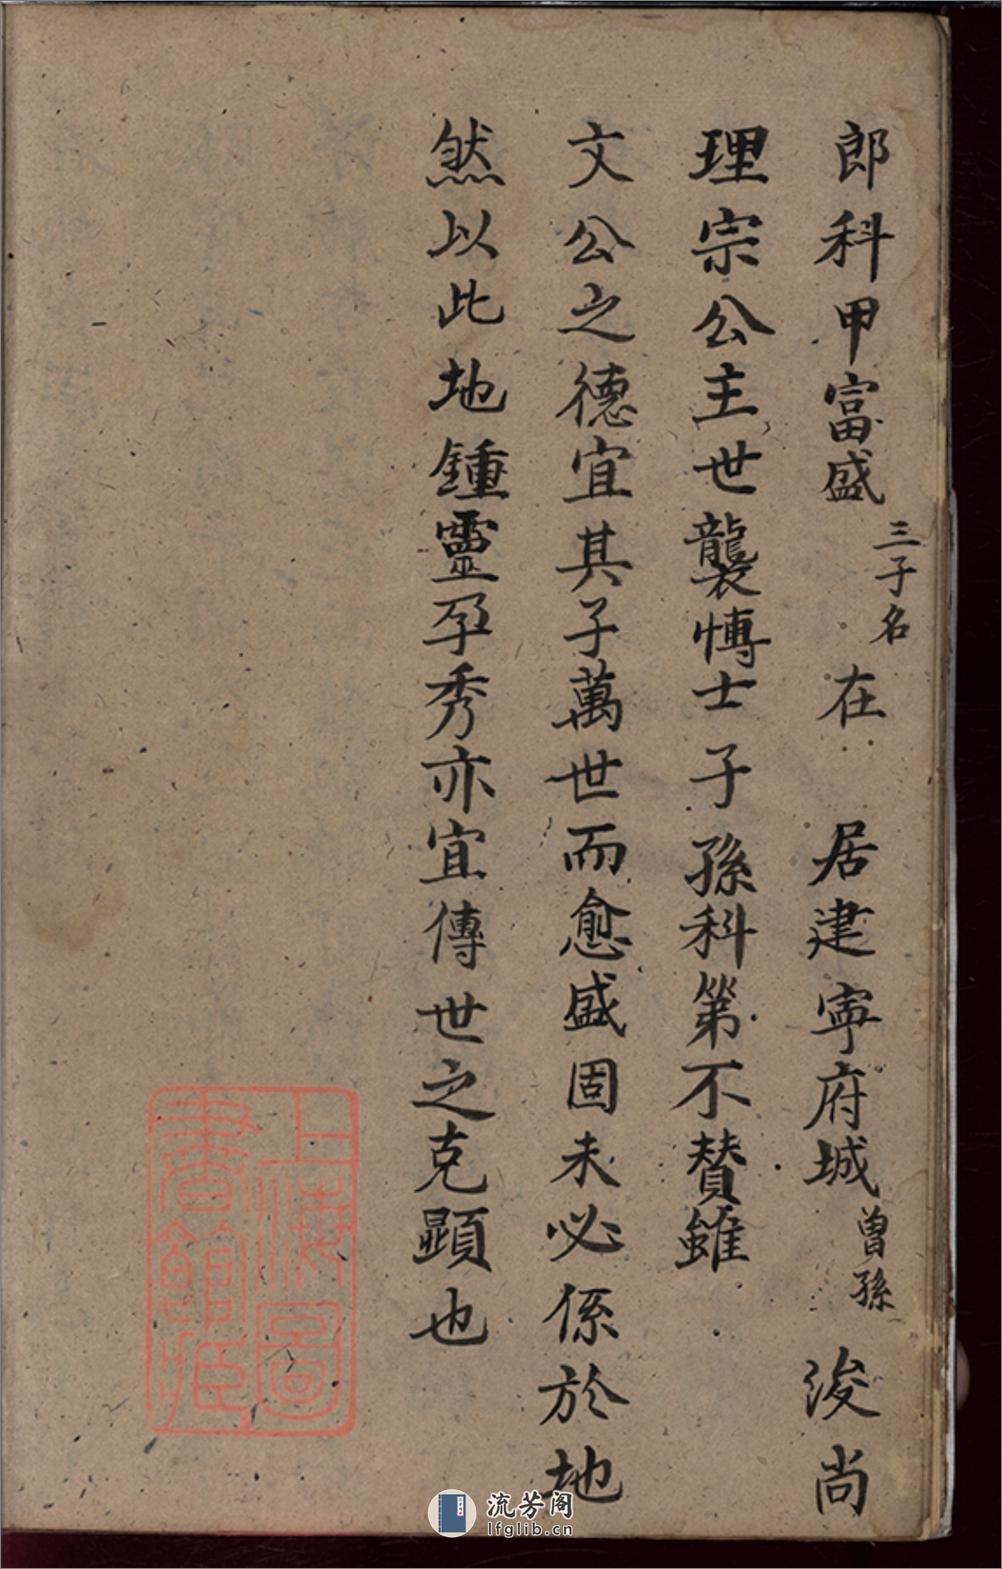 郎科甲富盛三子名在居建寧府城曾孫浚尚
理宗公主世襲愽士子孫科第不賛雖
文公之德宜其子萬世而愈盛固未必係於地
然以此地鍾靈孕秀亦宜傳世之克顕也
上海圖
書館藏
流芳阁
lfglib.cn